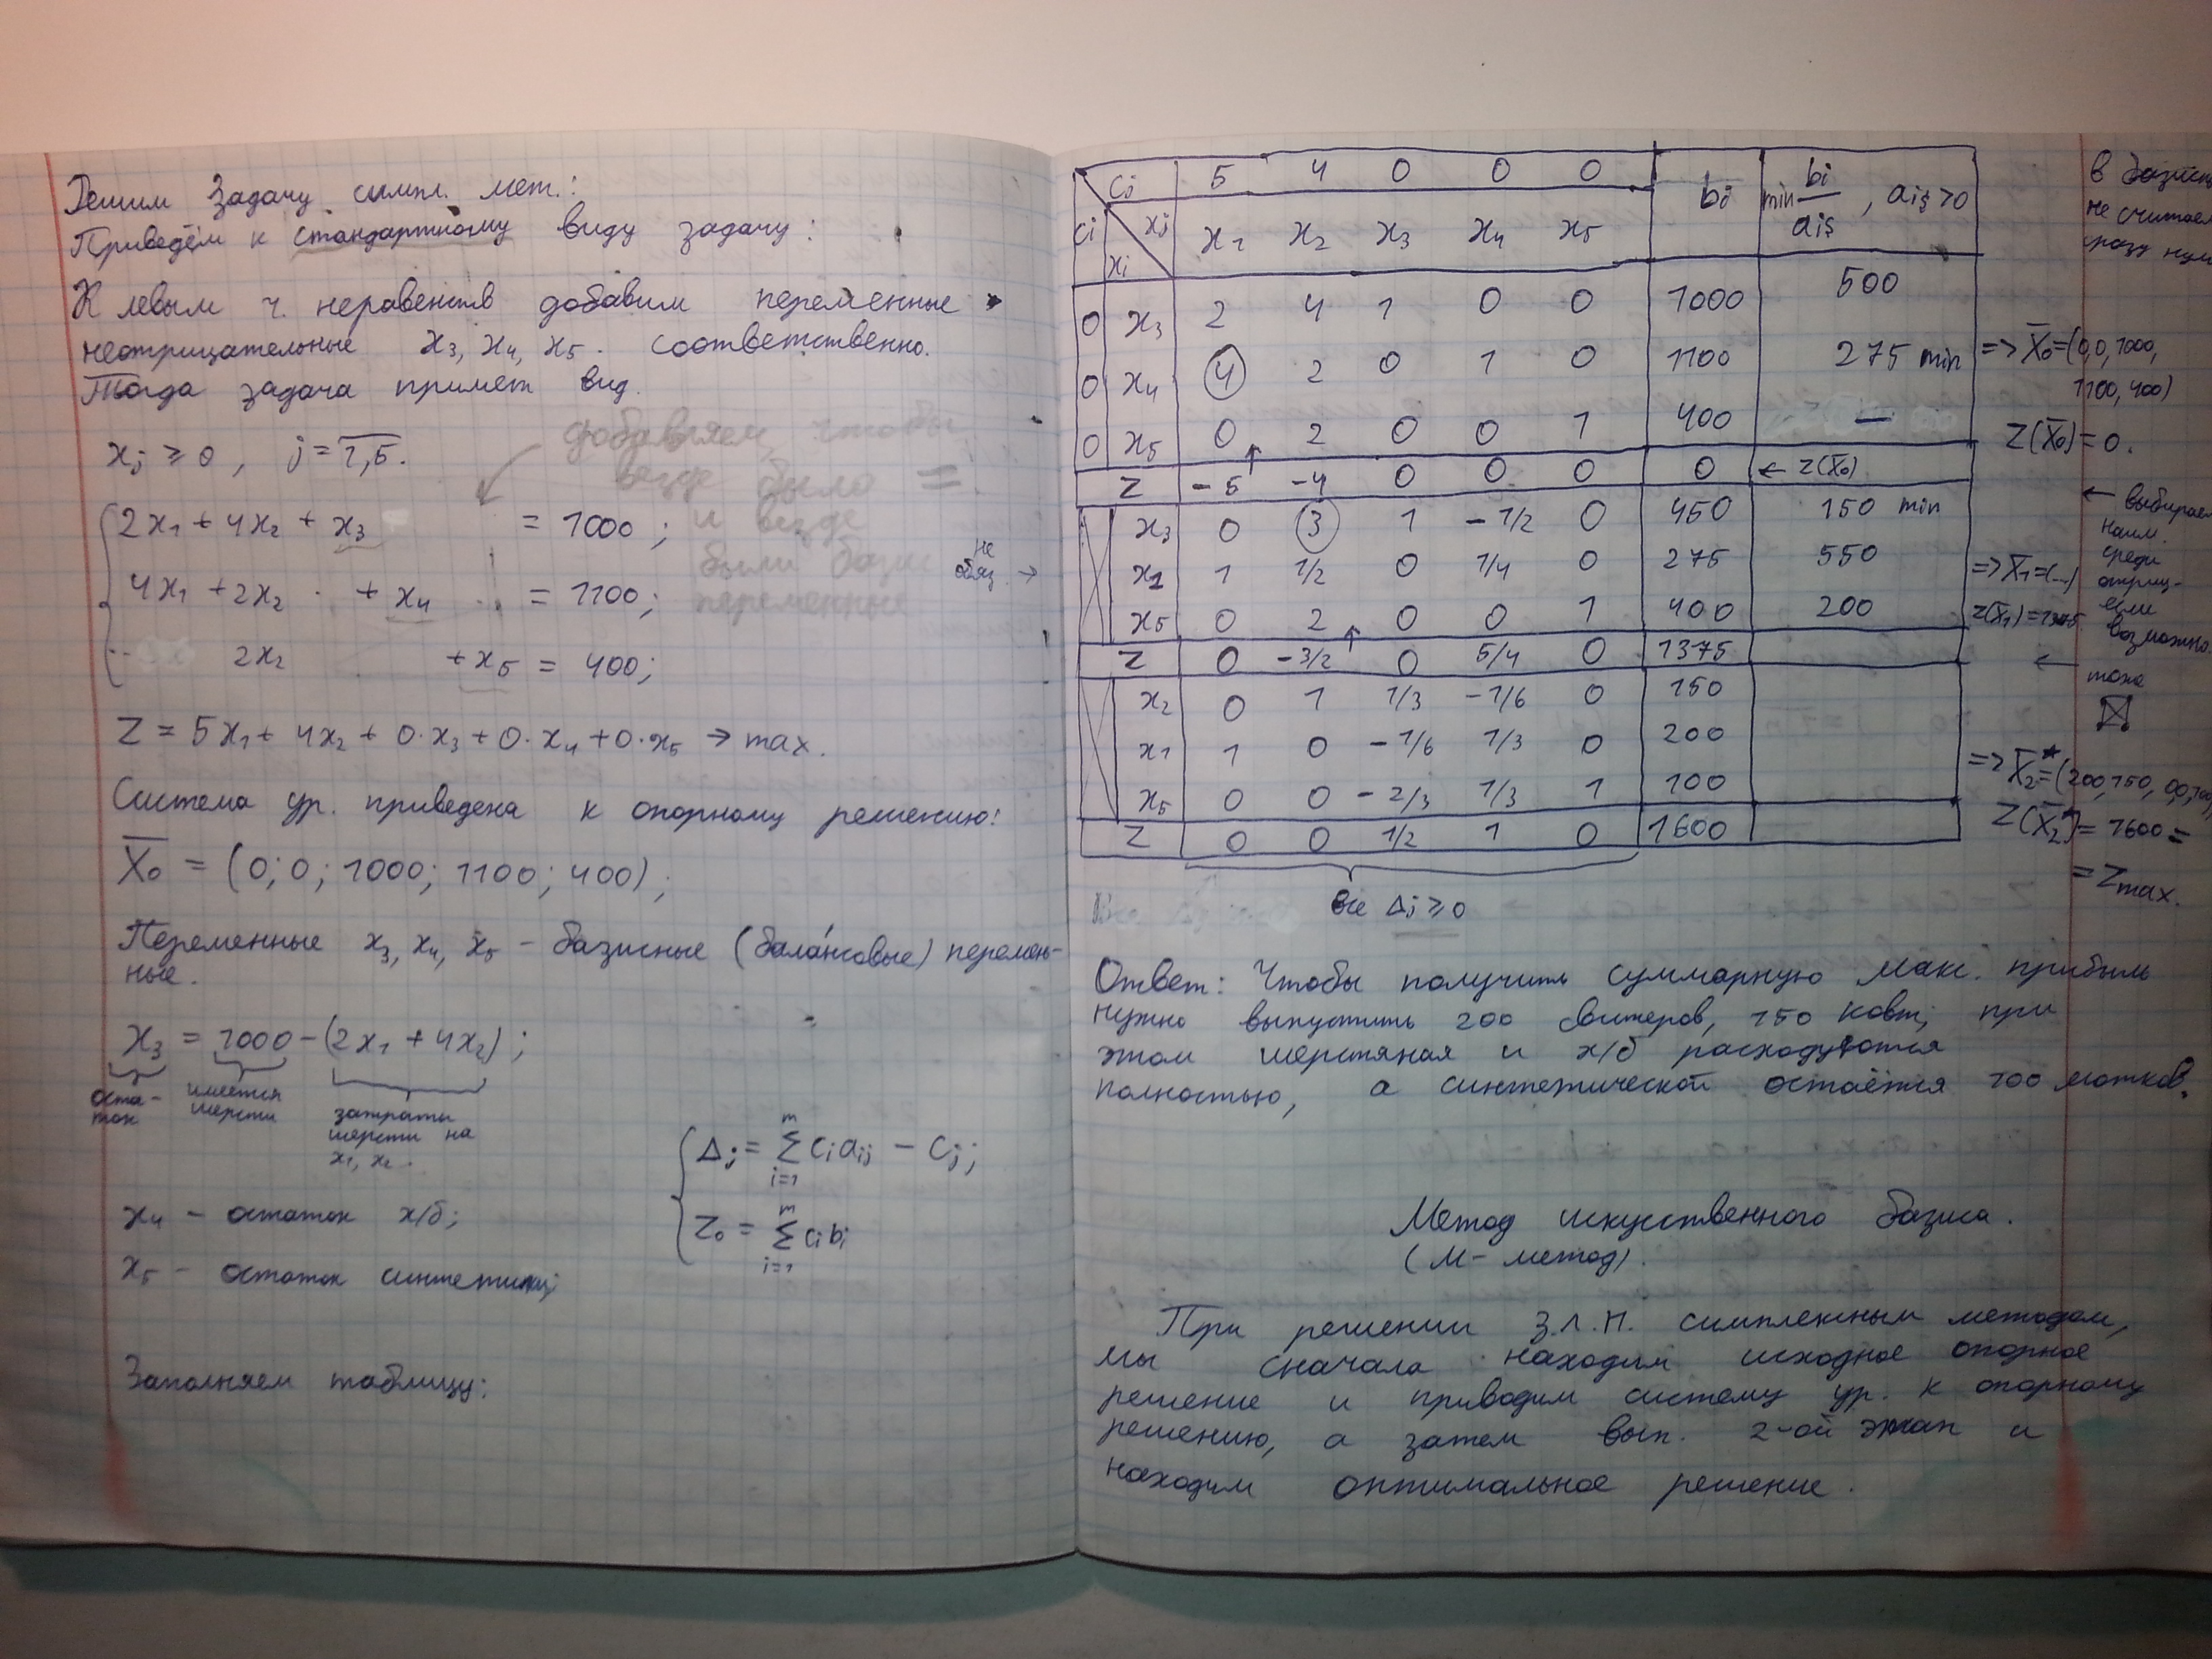 Решим задачу симпл. мет.:
Приведём к стандартному виду задачу:
К левым ч. неравенств добавим переменные
неотрицательные x₃, x₄, x₅. соответственно.
Тогда задача примет вид.
xⱼ ≥ 0, j = 1,5.
добавляем, чтобы
везде было =
и везде
были базис
переменные
2x₁ + 4x₂ + x₃ = 1000;
4x₁ + 2x₂ + x₄ = 1100;
2x₂ + x₅ = 400;
Z = 5x₁ + 4x₂ + 0·x₃ + 0·x₄ + 0·x₅ → max.
Система ур. приведена к опорному решению:
X₀ = (0; 0; 1000; 1100; 400);
Переменные x₃, x₄, x₅ – базисные (бала́нсовые) перемен-
ные.
x₃ = 1000 – (2x₁ + 4x₂);
оста-
ток
имеется
шерсти
затраты
шерсти на
x₁, x₂.
x₄ – остаток х/б;
x₅ – остаток синтетики;
Δⱼ = Σ cᵢaᵢⱼ – cⱼ;
m
i=1
Z₀ = Σ cᵢbᵢ
m
i=1
Заполняем таблицу:
cⱼ 5 4 0 0 0 bᵢ min bᵢ/aᵢₛ, aᵢₛ>0
cᵢ xᵢ xⱼ x₁ x₂ x₃ x₄ x₅
0 x₃ 2 4 1 0 0 1000 500
0 x₄ 4 2 0 1 0 1100 275 min => X₀=(0,0,1000,
1100,400)
0 x₅ 0 2 0 0 1 400 — Z(X₀)=0.
Z -5 -4 0 0 0 0 ← Z(X₀)
x₃ 0 3 1 -1/2 0 450 150 min
не
обяз. →
x₁ 1 1/2 0 1/4 0 275 550 => X₁=(...)
x₅ 0 2 0 0 1 400 200
Z 0 -3/2 0 5/4 0 1375
x₂ 0 1 1/3 -1/6 0 150
x₁ 1 0 -1/6 1/3 0 200
x₅ 0 0 -2/3 1/3 1 100
Z 0 0 1/2 1 0 1600
=> X₂*=(200,150,0,0,100)
Z(X₂*) = 1600 =
= Zmax.
не считаем
сразу
← выбирае
наим.
среди
отриц.
если
возможно.
← тоже
все Δⱼ ≥ 0
Ответ: Чтобы получить суммарную макс. прибыль
нужно выпустить 200 свитеров, 150 кофт, при
этом шерстяная и х/б расходуются
полностью, а синтетической остаётся 100 мотков.
Метод искуственного базиса.
(М – метод).
При решении З.Л.П. симплексным методом,
мы сначала находим исходное опорное
решение и приводим систему ур. к опорному
решению, а затем вып. 2-ой этап и
находим оптимальное решение.